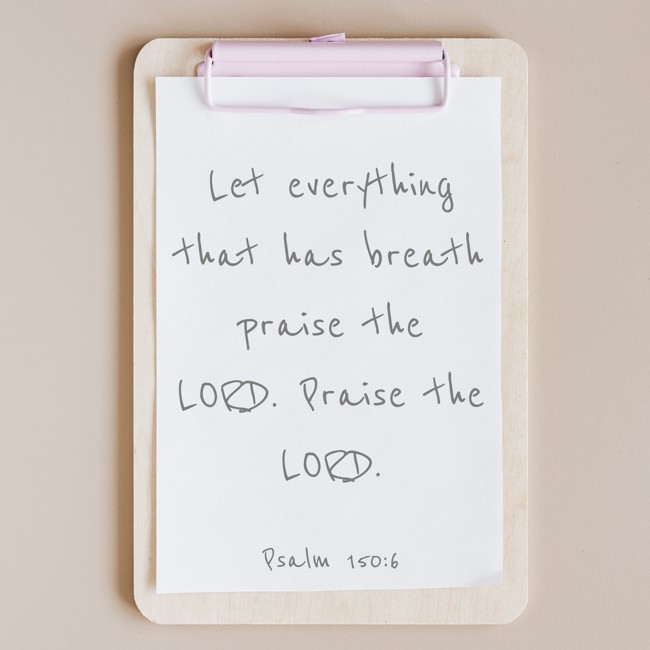 Let everything
that has breath
praise the
LORD. Praise the
LORD.
Psalm 150:6